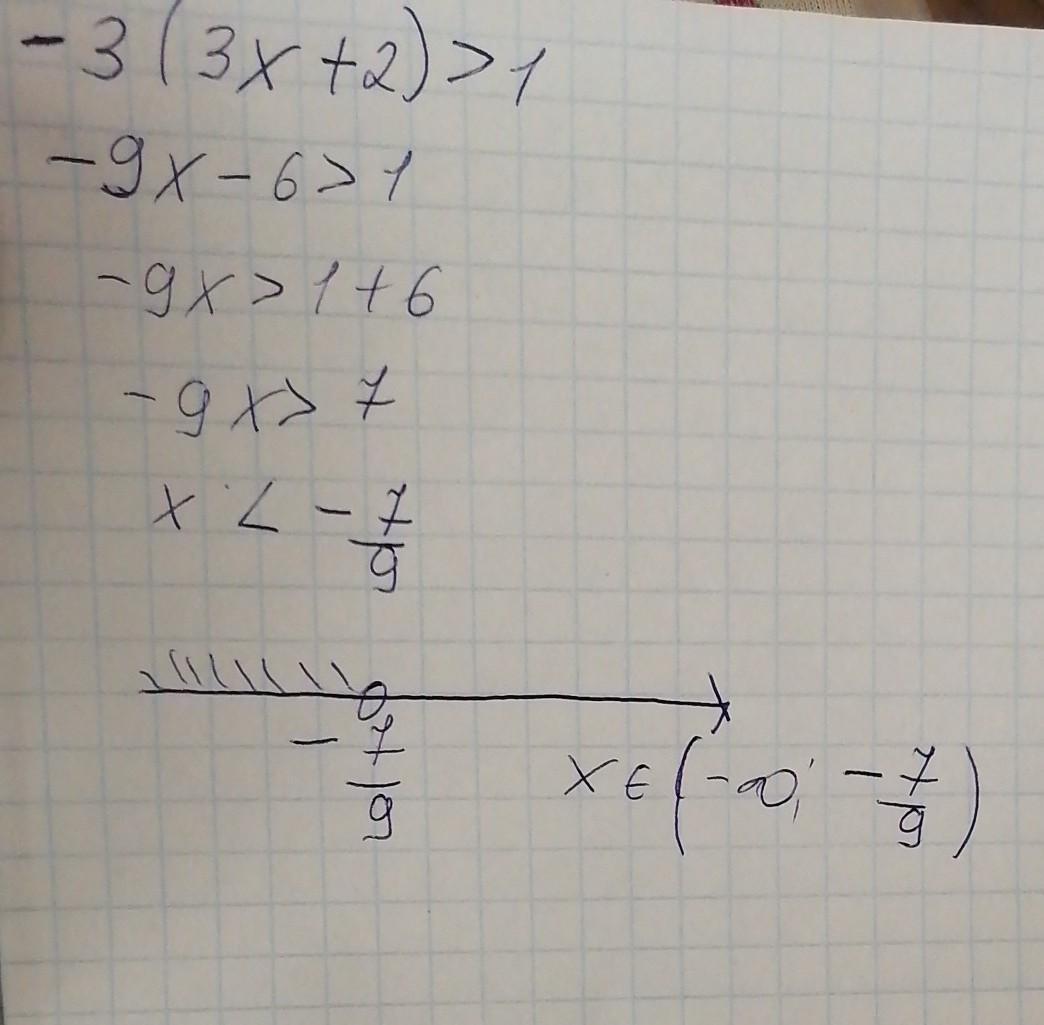 -3(3x+2)>1
-9x-6>1
-9x>1+6
-9x>7
x<-7/9
-7/9
x∈(-∞; -7/9)